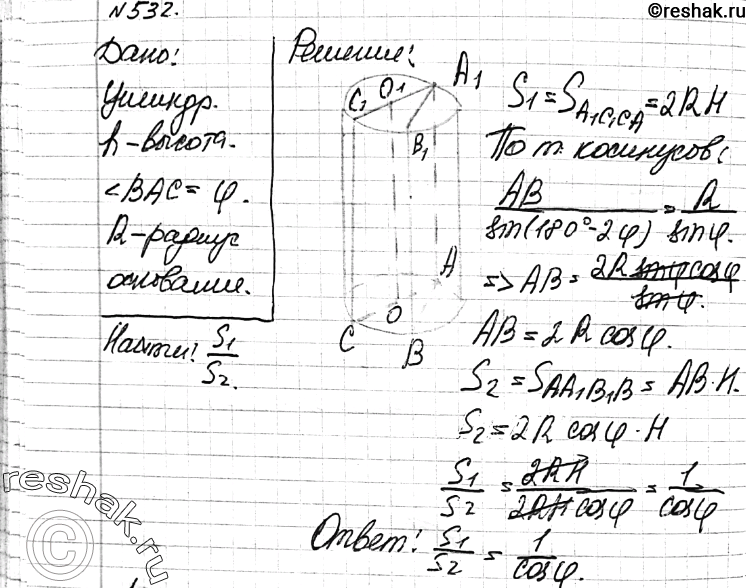 №532.
Дано:
Цилиндр.
h-высота.
<BAC = φ.
R-радиус
основание.
Найти: S1/S2.
Решение:
A1
O1
C1
B1
A
O
C
B
S1 = SA1C1CA = 2RH
По т. косинусов:
AB/sin(180°-2φ) = R/sinφ.
=> AB = 2R sinφ cosφ/sinφ.
AB = 2R cosφ.
S2 = SAA1B1B = AB·H.
S2 = 2R cosφ · H
S1/S2 = 2RH/2RH cosφ = 1/cosφ
Ответ: S1/S2 = 1/cosφ.
reshak.ru
reshak.ru
©